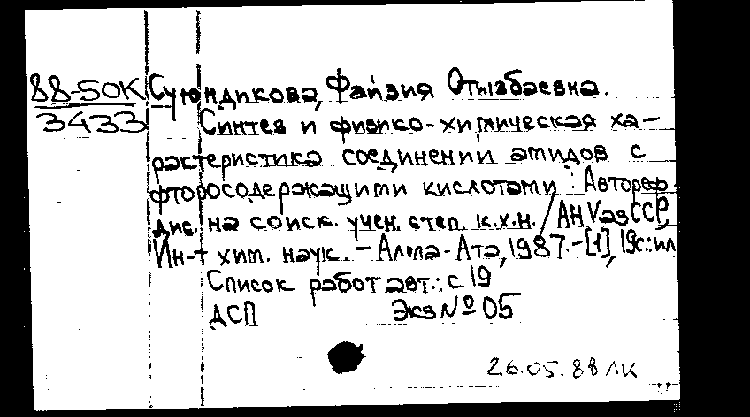 88-50К Суюндикова, Файзия Отыгбаевна.
3433 Синтез и физико-химическая ха-
рактеристика соединении амидов с
фторосодержащими кислотами: Автореф.
дис. на соиск. учен. степ. к.х.н. / АН КазССР,
Ин-т хим. наук. - Алма-Ата, 1987. - [1], 19с.: ил
Список работ авт.: с 19
ДСП Экз № 05
26.05.88 ЛК